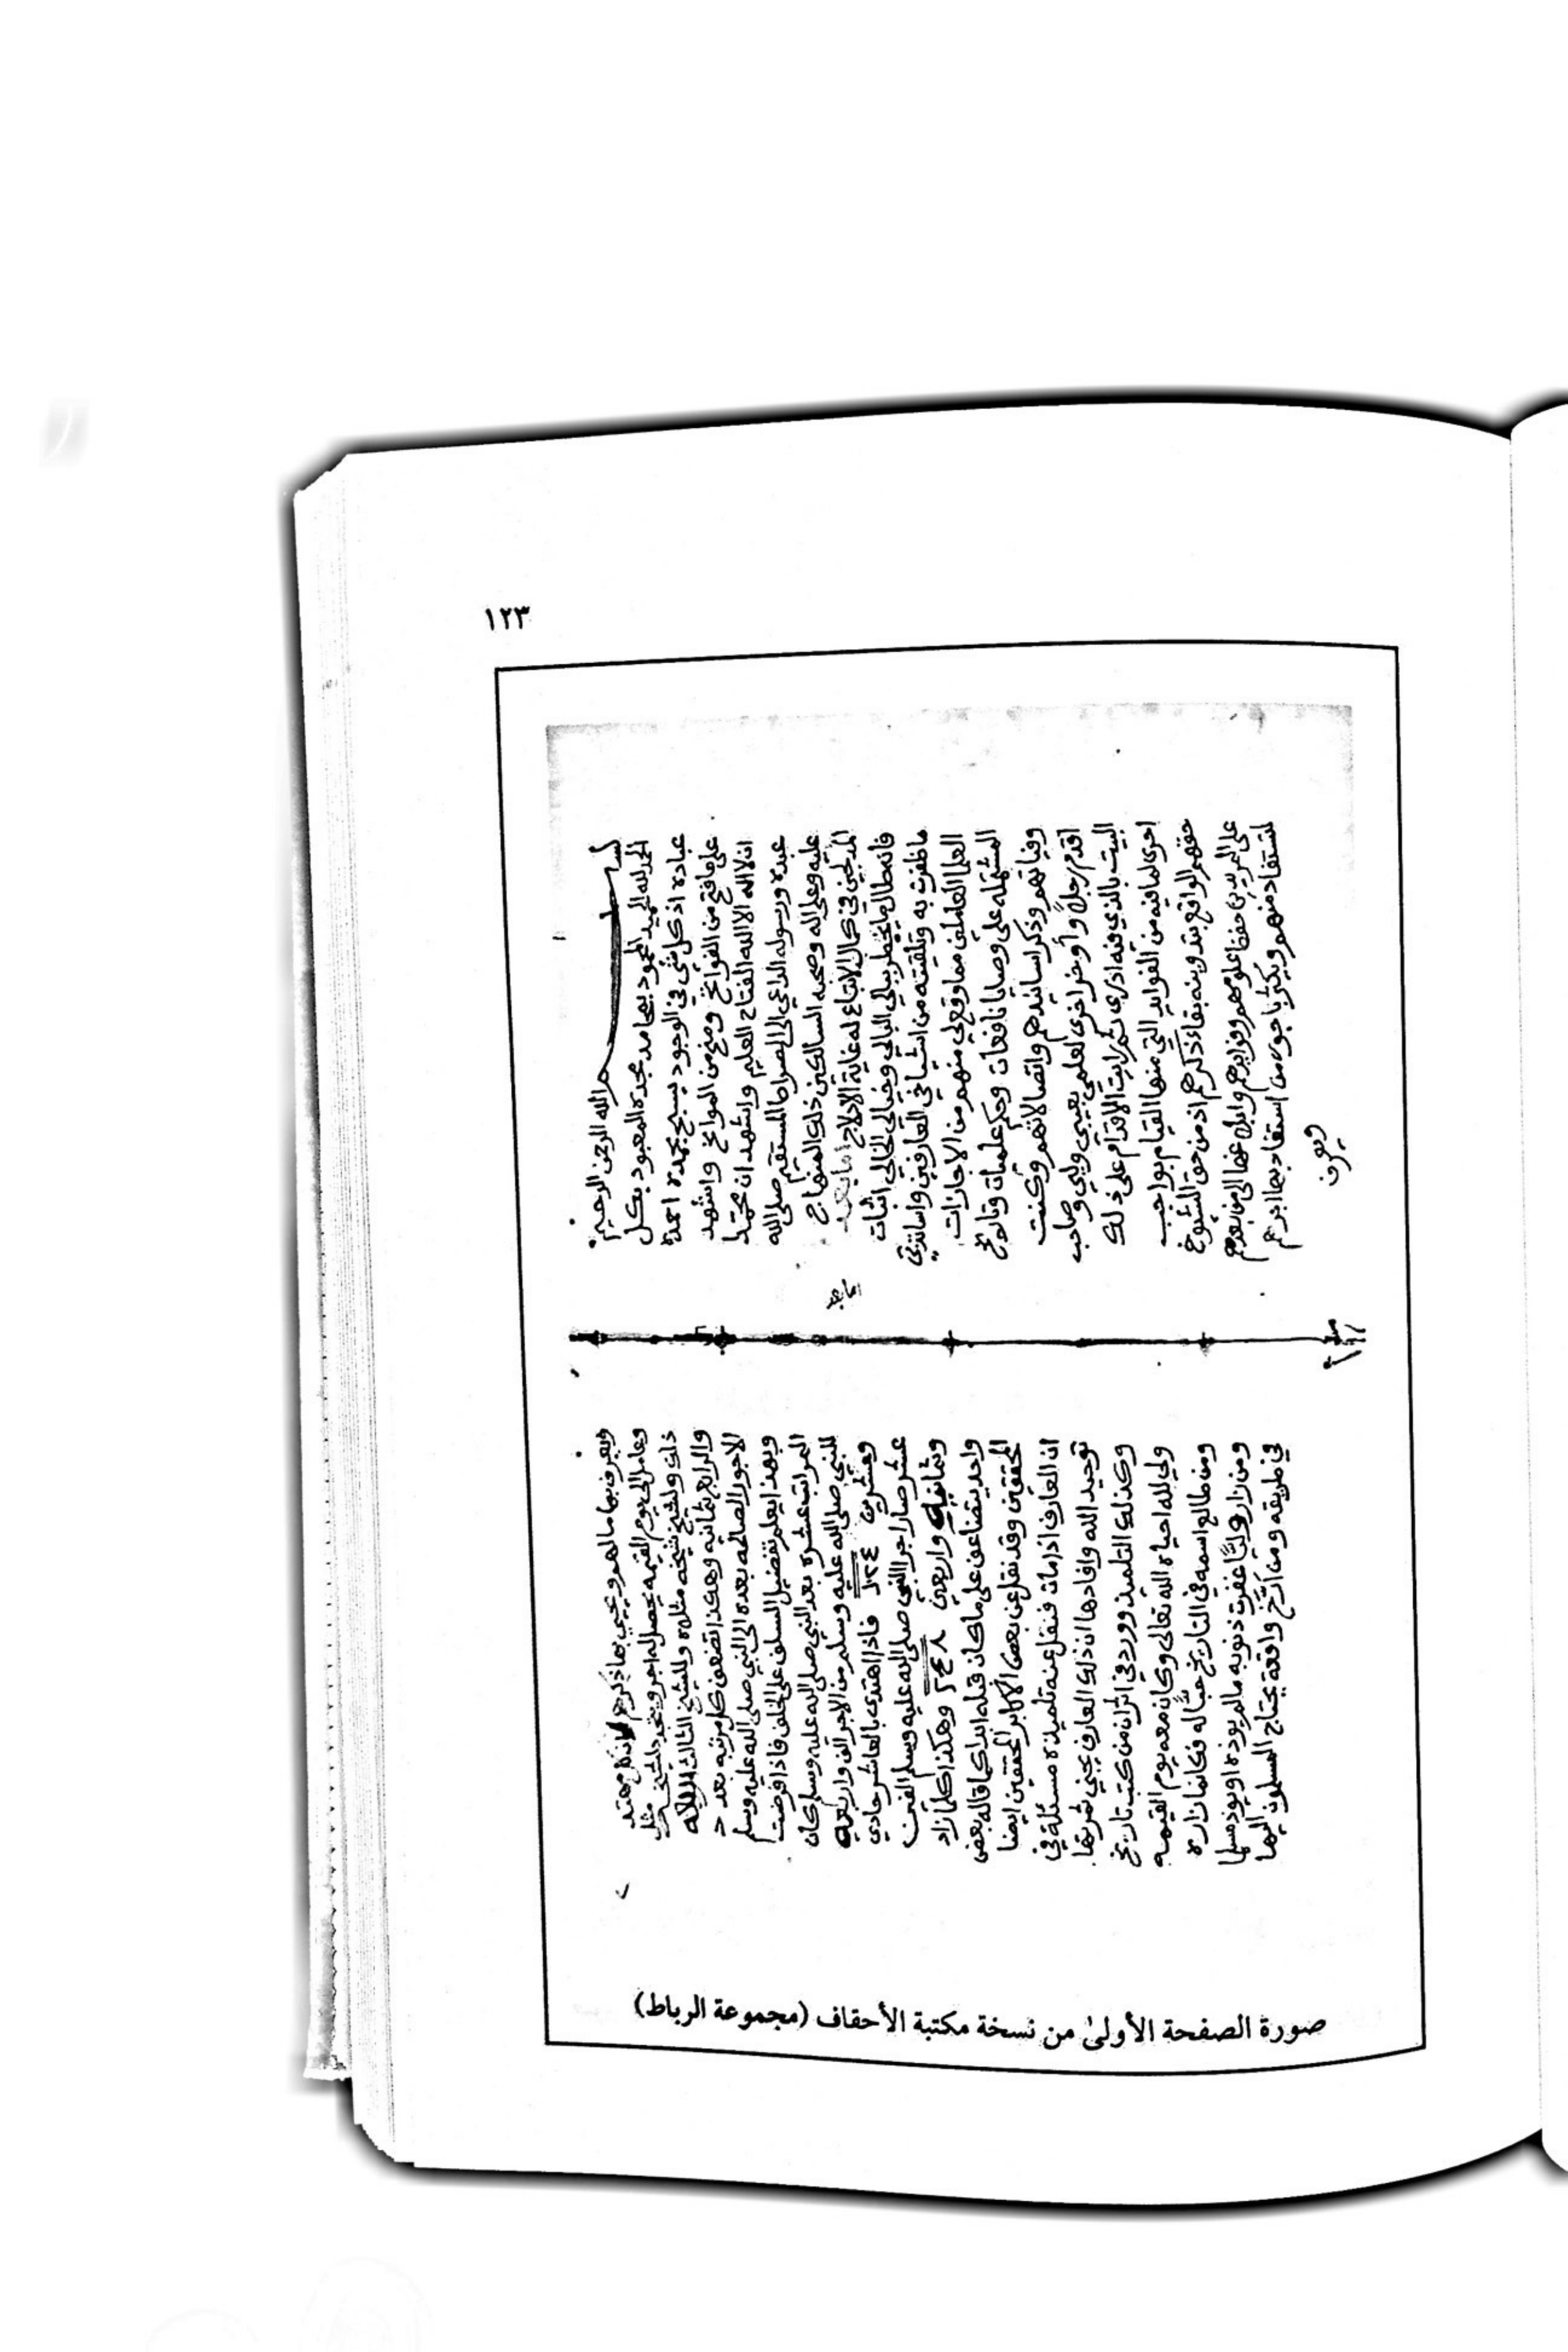 ١٢٣
بسم الله الرحمن الرحيم
الحمد لله الحميد المحمود بمحامد مجده المعبود بكل
عباده اذ كل شي في الوجود يسبح بحمده احمده
على ما فتح من الفواتح ومنح من الموانح واشهد
ان لا اله الا الله الفتاح العليم واشهد ان محمدا
عبده ورسوله الداعي الى الصراط المستقيم صلى الله
عليه وعلى اله وصحبه السالكين ذلك المنهاج
المدلجين في كمال الاتباع له غاية الادلاج اما بعد
اما بعد
فانه طال ما يخطر ببالي البالي وخيالي الخالي اثبات
ما ظفرت به وتلقيته من اشياخي العارفين واساتذتي
العلما العاملين مما وقع لي منهم من الاجازات
المشتمله على وصايا نافعات وحكم علميات وتاريخ
وفياتهم وذكر اسانيدهم واتصالاتهم وكنت
اقدم رجلا وأوخر اخرى لعلمي بعيبي وليي وصاحب
البيت بالذي فيه ادرى ثم رايت الاقدام على ذلك
احرى لما فيه من الفوايد التي منها القيام بواجب
حقهم الواقع بتدوينه بقاء ذكرهم اذ من حق الشيوخ
على المريدين حفظ علومهم وفوايدهم وابلاغها الى من بعدهم
لتستفاد منهم ويكونوا ماجورين من استفاد بها اجرهم
ويعرف
ويعرف بها مالهم ويحيى بها ذكرهم لان كل مهتد
وعامل الى يوم القيمه يحصل له اجر ويتجدد لشيخه مثل
ذلك ولشيخ شيخه مثلاه وللشيخ الثالث اربعه
والرابع ثمانيه وهكذا تضعف كل مرتبه بعدد
الاجور الحاصله بعده الى النبي صلى الله عليه وسلم
وبهذا يعلم تفضيل السلف على الخلف فاذا فرضت
المراتب عشره بعد النبي صلى الله عليه وسلم كان
للنبي صلى الله عليه وسلم من الاجر الف واربعه
وعشرين ١٠٢٤ فاذا اهتدى بالعاشر حادي
عشر صار اجر النبي صلى الله عليه وسلم الفين
وثمانيه واربعين ٢٠٤٨ وهكذا كلما زاد
واحد يتضاعف على ما كان قبله ابدا كما قاله بعض
المحققين وقد نقل عن بعض الاكابر المحققين ايضا
ان العارف اذا مات فنقل عنه تلميذه مسئلة في
توحيد الله وافادها ان ذلك العارف يجني ثمرتها
وكذلك التلميذ وورد في اثر ان من كتب تاريخ
ولي لله احياه الله تعالى وكان معه يوم القيمه
ومن طالع اسمه في التاريخ حبا له فكانما زاره
ومن زار وليا غفرت ذنوبه مالم يوذه او يوذ مسلما
في طريقه ومن أرخ واقعة يحتاج المسلمون اليها
صورة الصفحة الأولىٰ من نسخة مكتبة الأحقاف (مجموعة الرباط)